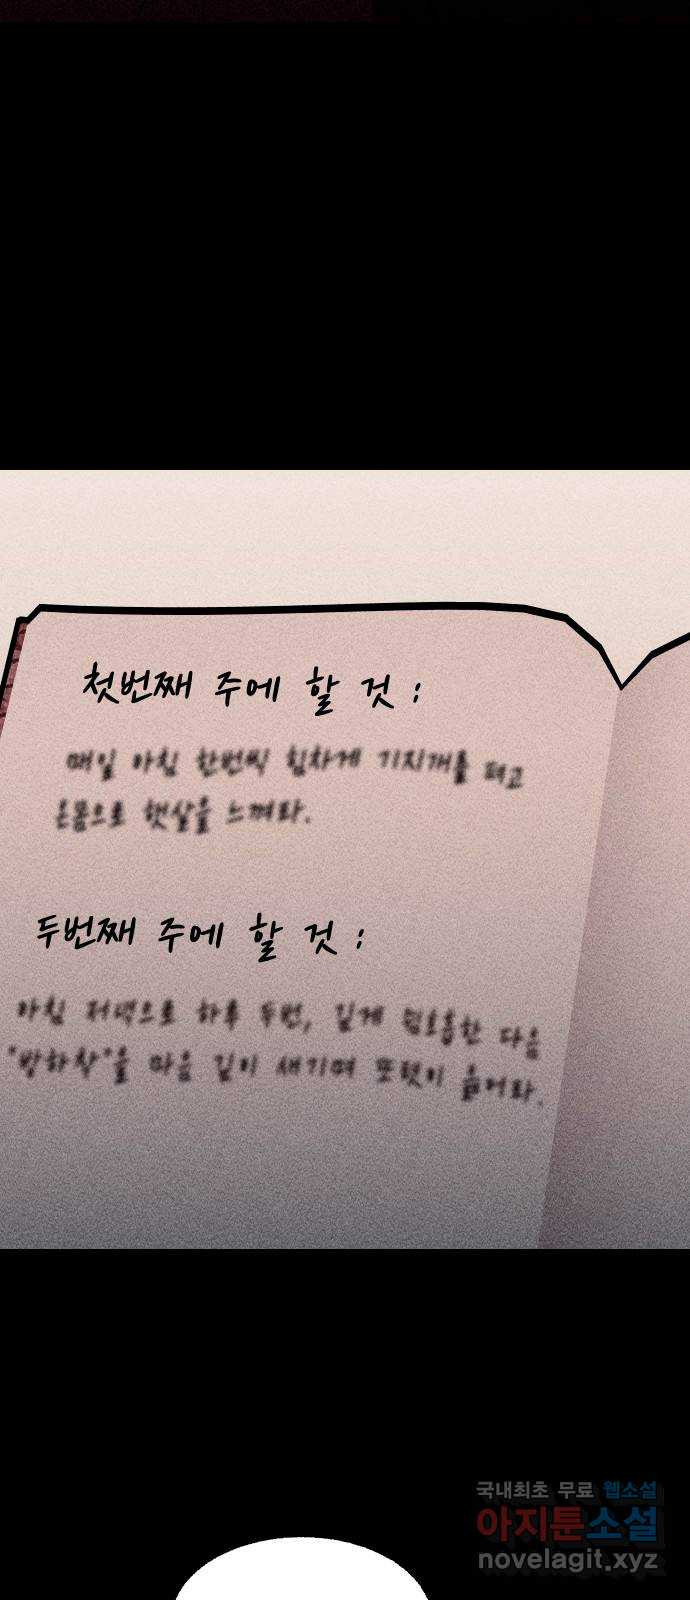 첫번째 주에 할 것 :
매일 아침 한번씩 힘차게 기지개를 펴고
온몸으로 햇살을 느껴라.
두번째 주에 할 것 :
아침 저녁으로 하루 두번, 길게 심호흡한 다음
"방하착"을 마음 깊이 새기며 또렷이 읊어라.
국내최초 무료 웹소설
아지툰소설
novelagit.xyz